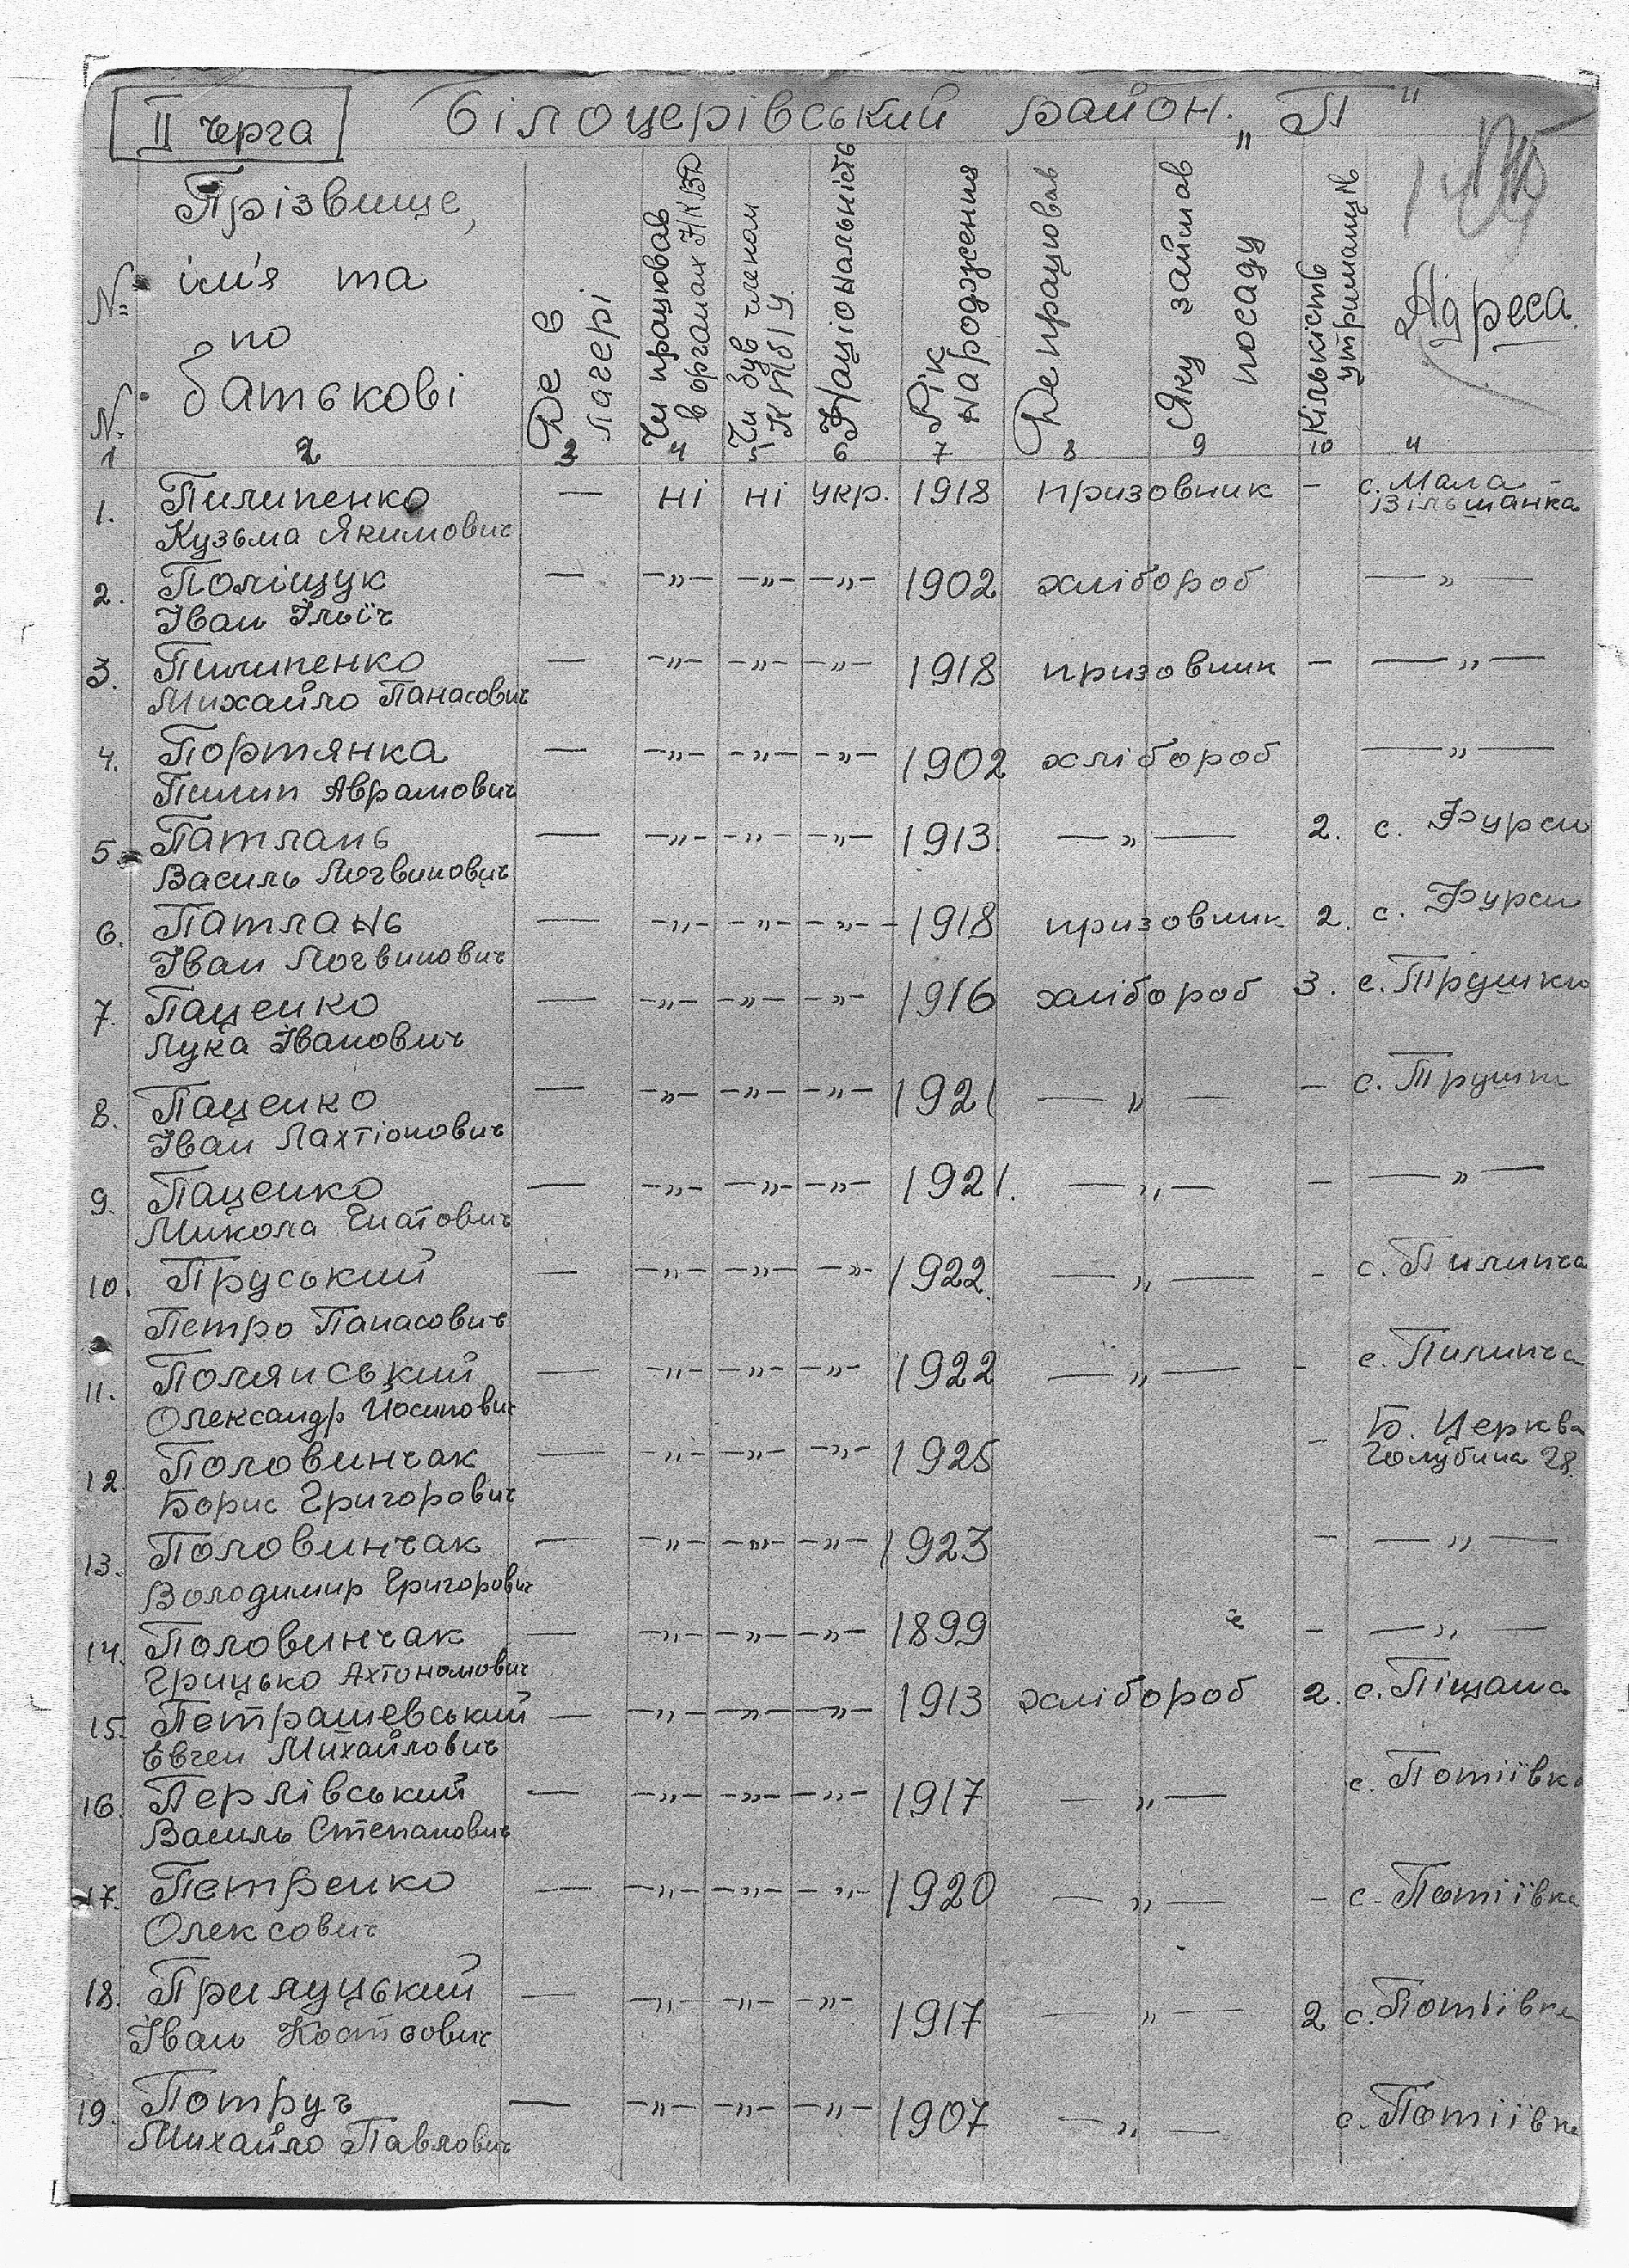 II черга
Білоцерівський район. „П"
№ №
Прізвище,
ім'я та
по
батькові
Де в
лагері
Чи працював
в органах НКВД
Чи був членом
КП(б)У.
Національність
Рік
народження
Де працював
Яку займав
посаду
Кількість
утриманців
Адреса.
1 2 3 4 5 6 7 8 9 10 11
1. Пилипенко — ні ні укр. 1918 призовник - с. Мала
Кузьма Якимович Вільшанка
2. Поліщук — -„- -„- -„- 1902 хлібороб —„—
Іван Ілліч
3. Пилипенко — -„- -„- -„- 1918 призовник - —„—
Михайло Панасович
4. Портянка — -„- -„- -„- 1902 хлібороб —„—
Пилип Аврамович
5. Патлань — -„- -„- -„- 1913. —„— 2. с. Фурси
Василь Логвинович
6. Патлань — -„- -„- -„- 1918 призовник 2. с. Фурси
Іван Логвинович
7. Паценко — -„- -„- -„- 1916 хлібороб 3. с. Трушки
Лука Іванович
8. Паценко — -„- -„- -„- 1921 —„— - с. Трушки
Іван Лахтіонович
9. Паценко — -„- -„- -„- 1921. —„— - —„—
Микола Гнатович
10. Пруський — -„- -„- -„- 1922. —„— - с. Пилипча
Петро Панасович
11. Полянський — -„- -„- -„- 1922 —„— - с. Пилипча
Олександр Йосипович
12. Половинчак — -„- -„- -„- 1925 - Б. Церква
Борис Григорович Голубина 28.
13. Половинчак — -„- -„- -„- 1923 - —„—
Володимир Григорович
14. Половинчак — -„- -„- -„- 1899 - —„—
Грицько Ахтономович
15. Петрашевський — -„- -„- -„- 1913 хлібороб 2. с. Піщана
Євген Михайлович
16. Перлівський — -„- -„- -„- 1917 —„— с. Потіївка
Василь Степанович
17. Петренко — -„- -„- -„- 1920 —„— - с. Потіївка
Олексович
18. Прилуцький — -„- -„- -„- 1917 —„— 2 с. Потіївка
Іван Костьович
19. Потруч — -„- -„- -„- 1907 —„— с. Потіївка
Михайло Павлович